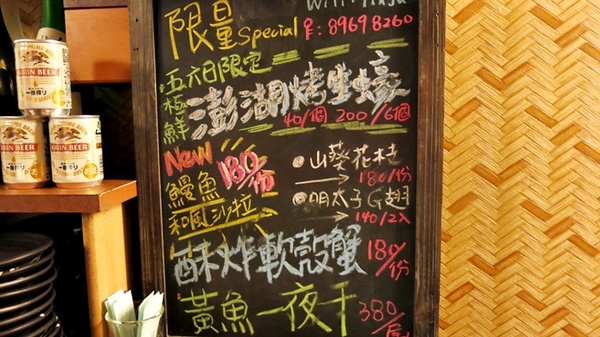 限量Special
WiFi: Tinju
P: 89698260
五六日限定
極鮮 澎湖烤生蠔
40/個 200/6個
New
鰻魚
和風沙拉
180/份
山葵花枝
180/份
明太子G翅
140/2入
酥炸軟殼蟹 180/份
黃魚一夜干 380/尾
KIRIN BEER
一番搾り
KIRIN BEER
一番搾り
KIRIN BEER
一番搾り